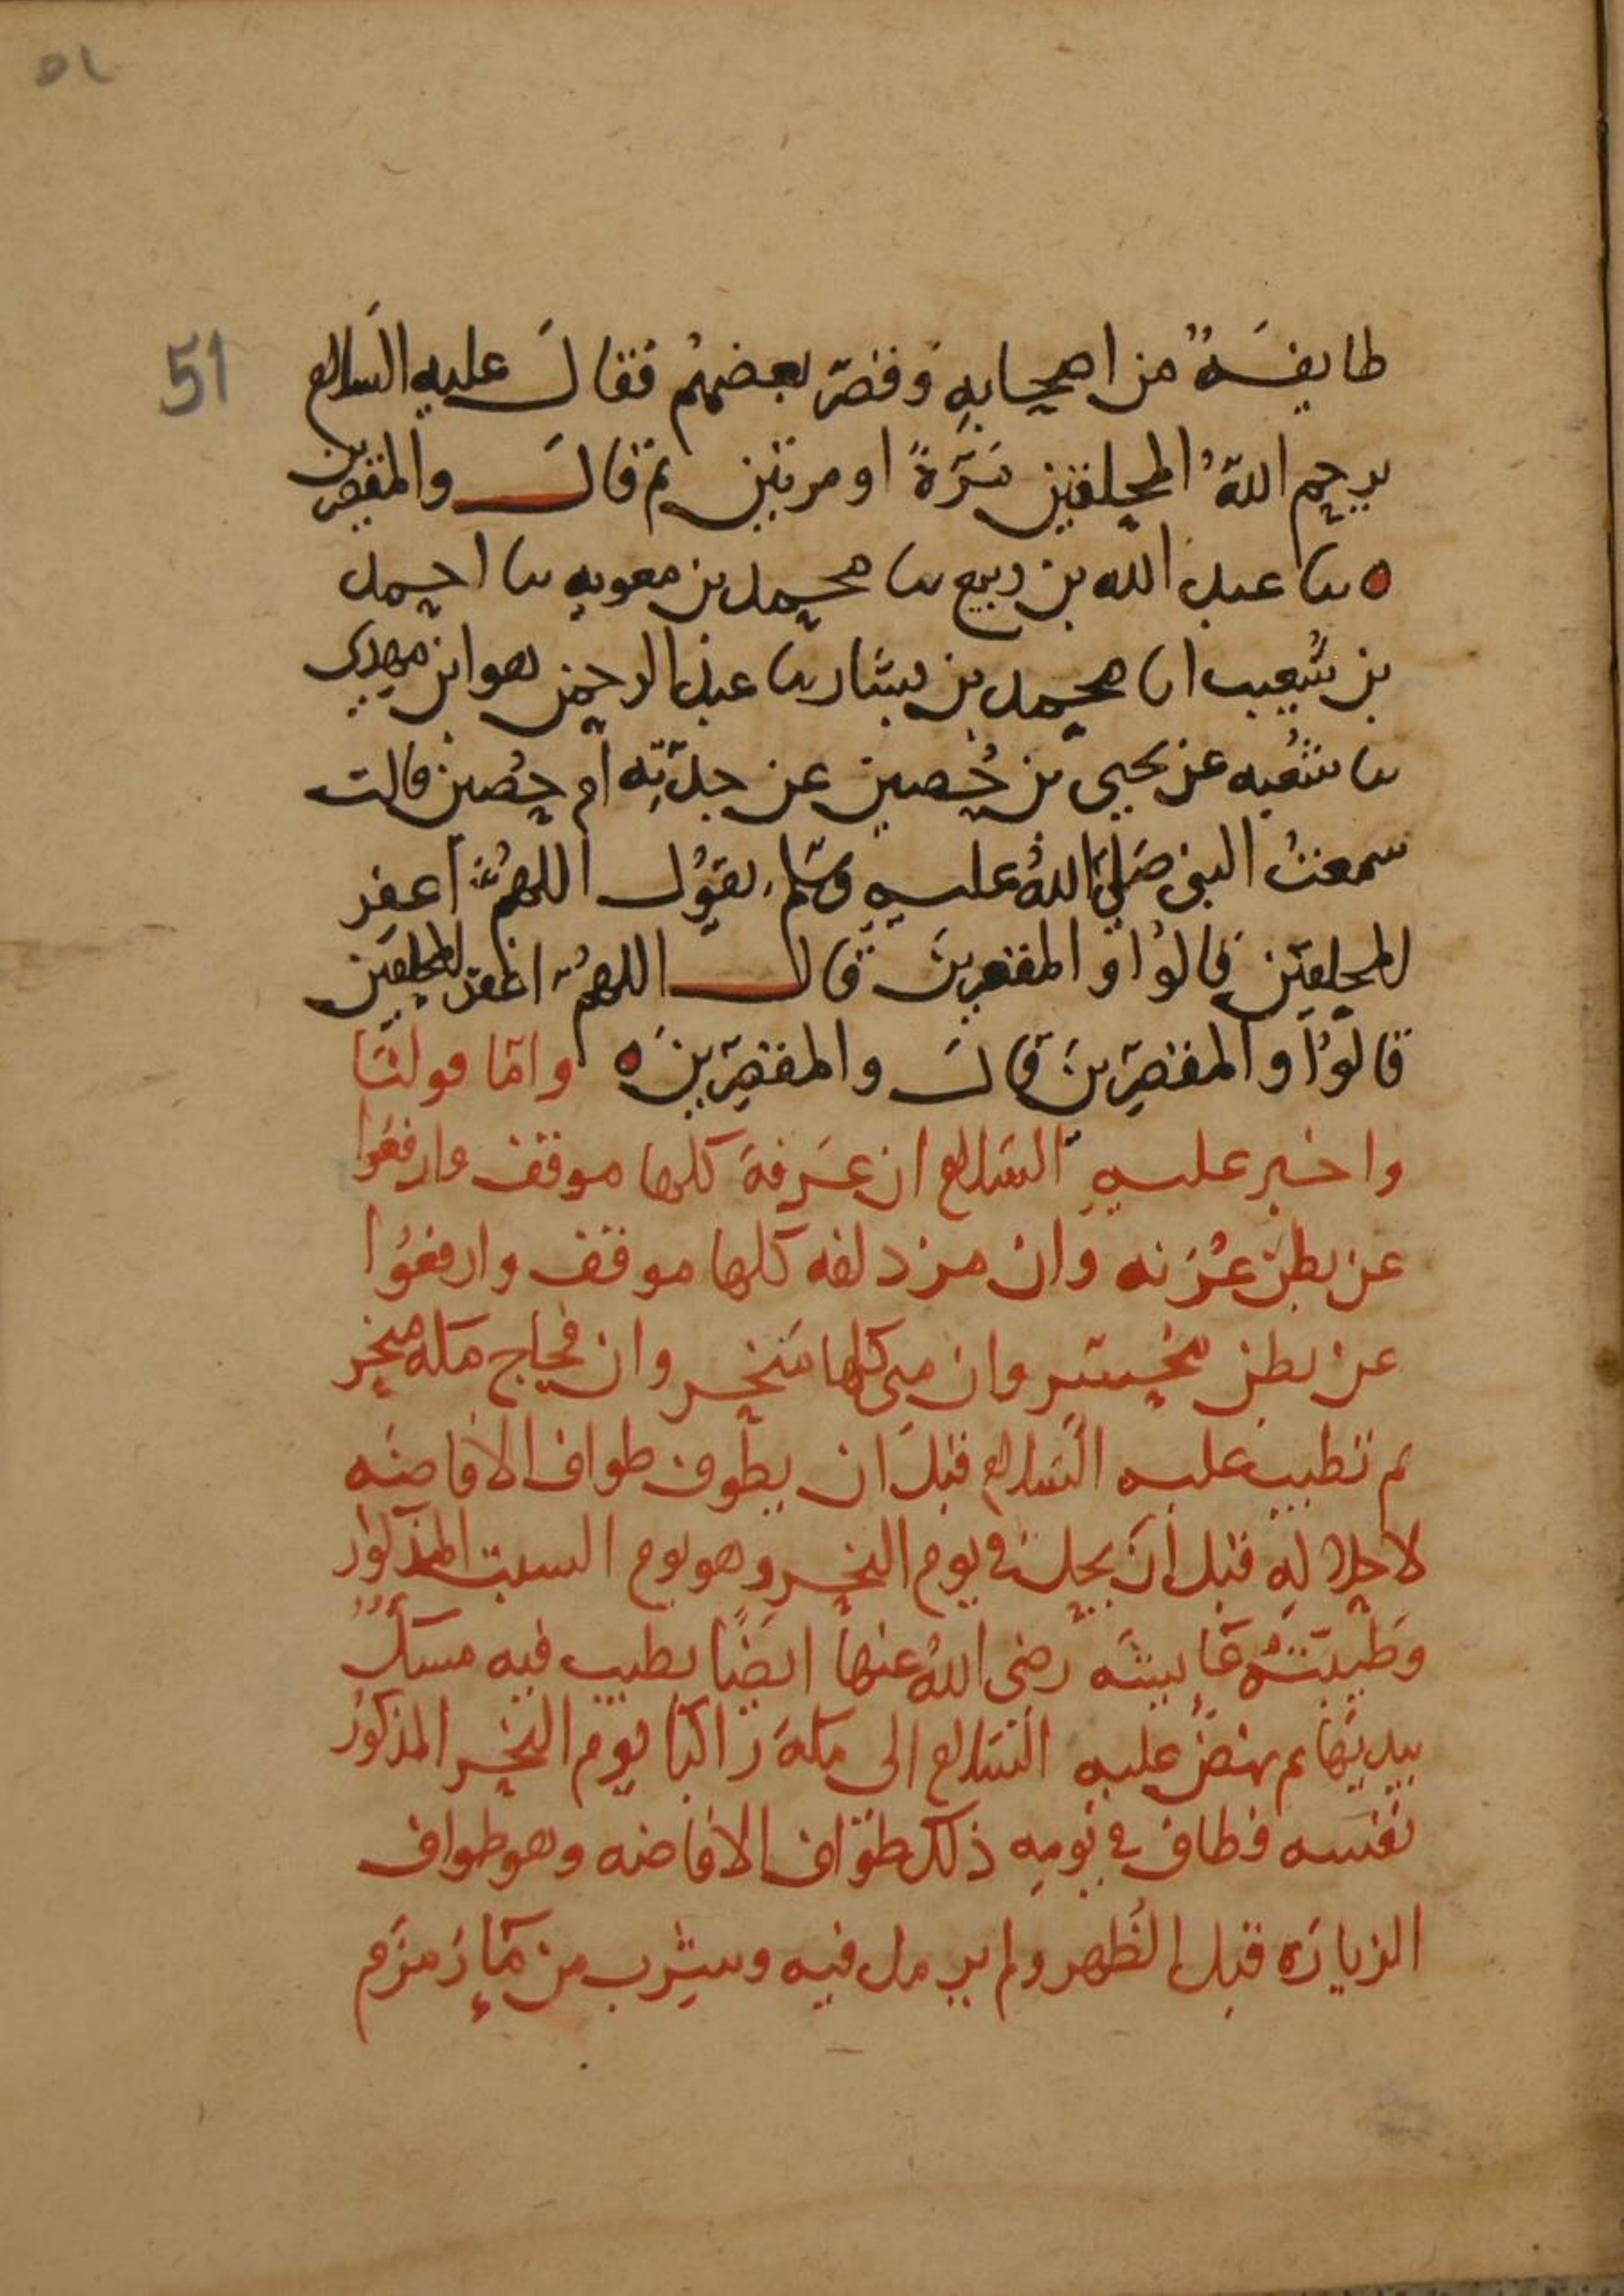 51
طايفةٌ من اصحابهِ وقصّر بعضهُم فقال عليه السلام
يرحم اللهُ المحلقين مَرّةً او مرتين ثم قال والمقصرين
ثنا عبد الله بن ربيع ثنا محمد بن معويه ثنا احمد
بن شعيب انا محمد بن بشار ثنا عبد الرحمن هو ابن مهدي
ثنا شُعبه عن يحيى بن حُصين عن جدّتِه ام حُصين قالت
سمعتُ النبي صَلى اللهُ عليه وسَلم يقوُل اللهُمَّ اغفر
للمحلقين قالوُا والمقصرين قال اللهُمّ اغفر للمحلقين
قالوُا والمقصّرينَ قالَ والمقصّرين وامّا قولنَا
واخبر عليهِ السَلام ان عَرفةَ كلها موقف وارفعُوا
عن بطن عُرَنه وان مزدلفه كلها موقف وارفعُوا
عن بطن مُحَسّر وان مِنى كلها مَنحر وان فجاج مكه منحر
ثم تطيب عليه السَلام قبلَ ان يطُوف طواف الافاضَه
لاحلاله قبل اَن يحل في يوم النحر وهو يوم السبت المذكور
وَطيّبَتْهُ عَايشَه رضي اللهُ عنها ايضًا بطيب فيه مسكٌ
بيديهَا ثم نهضَ عليه السَلام الى مكهَ رَاكبًا يوم النحر المذكورُ
نفسه فطاف في يومِه ذلك طوَاف الافاضه وهو طواف
الزيارَه قبل الظهر ولم يرمل فيه وشرب من مَآءِ زَمزَم